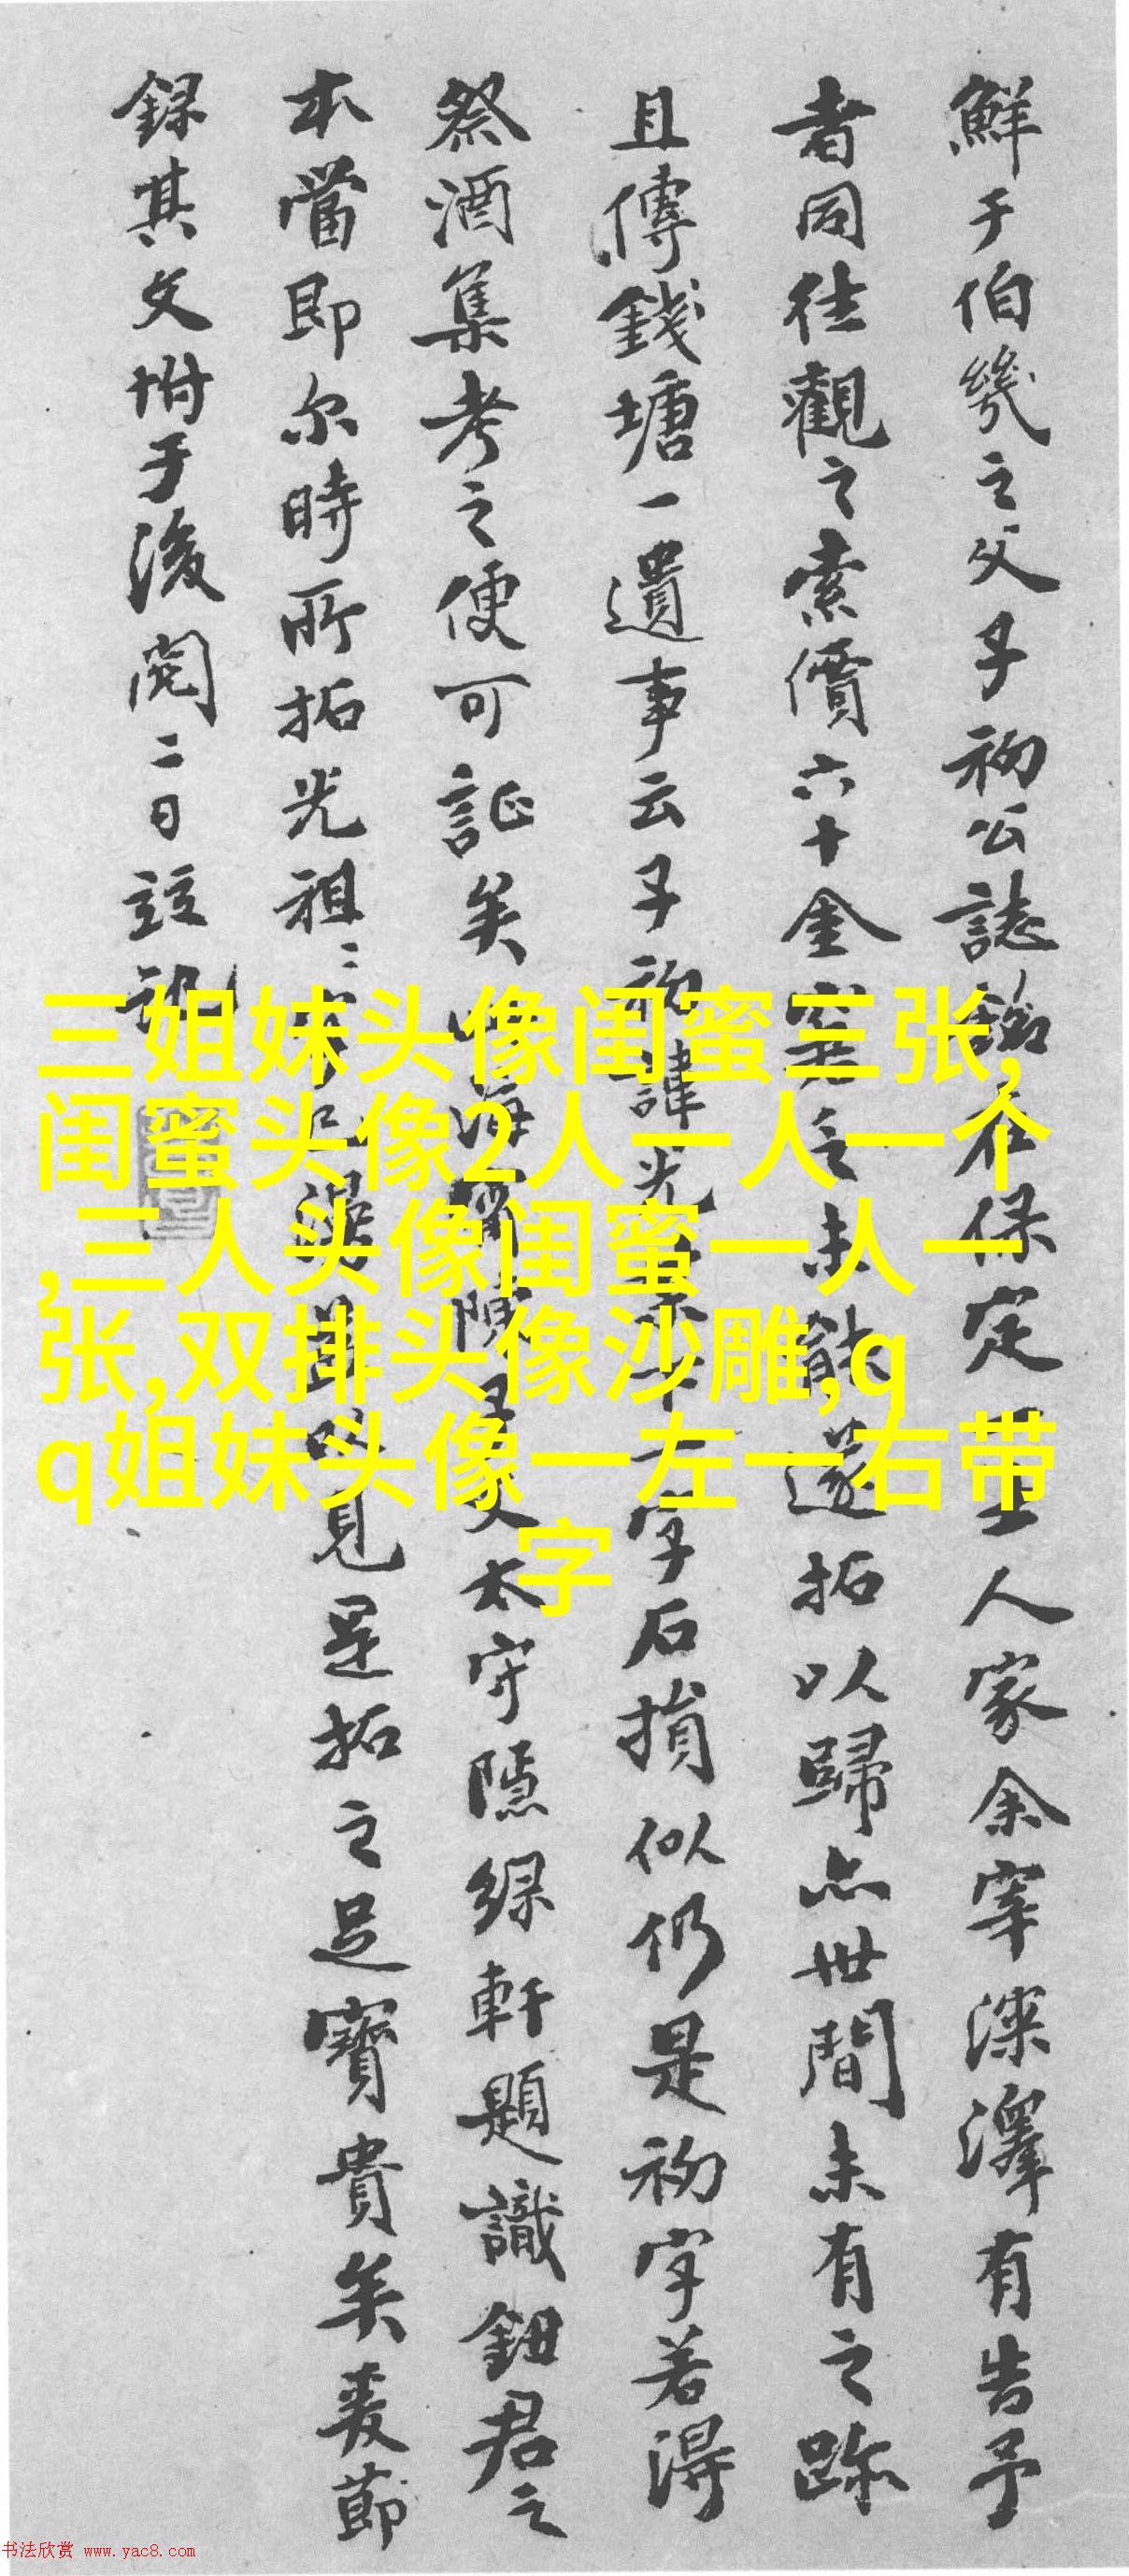 鮮于伯幾之父子初公誌銘在保定士人家余宰深澤有告予
者同往觀之索價六十金室之未能遂拓以歸亦世間未有之跡
且傳錢塘一遺事云子初諱光字石損似仍是初字若得
祭酒集考之便可証矣海陳太守隱綠軒題識鈕君之
本當即尔時所拓光祖二見是拓之足寶貴矣爰節
錄其文坿于後閏二日竝記
三姐妹头像闺蜜三张,
闺蜜头像2人一人一个
,三人头像闺蜜一人一
张,双排头像沙雕,q
q姐妹头像一左一右带
字
书法欣赏 www.yac8.com